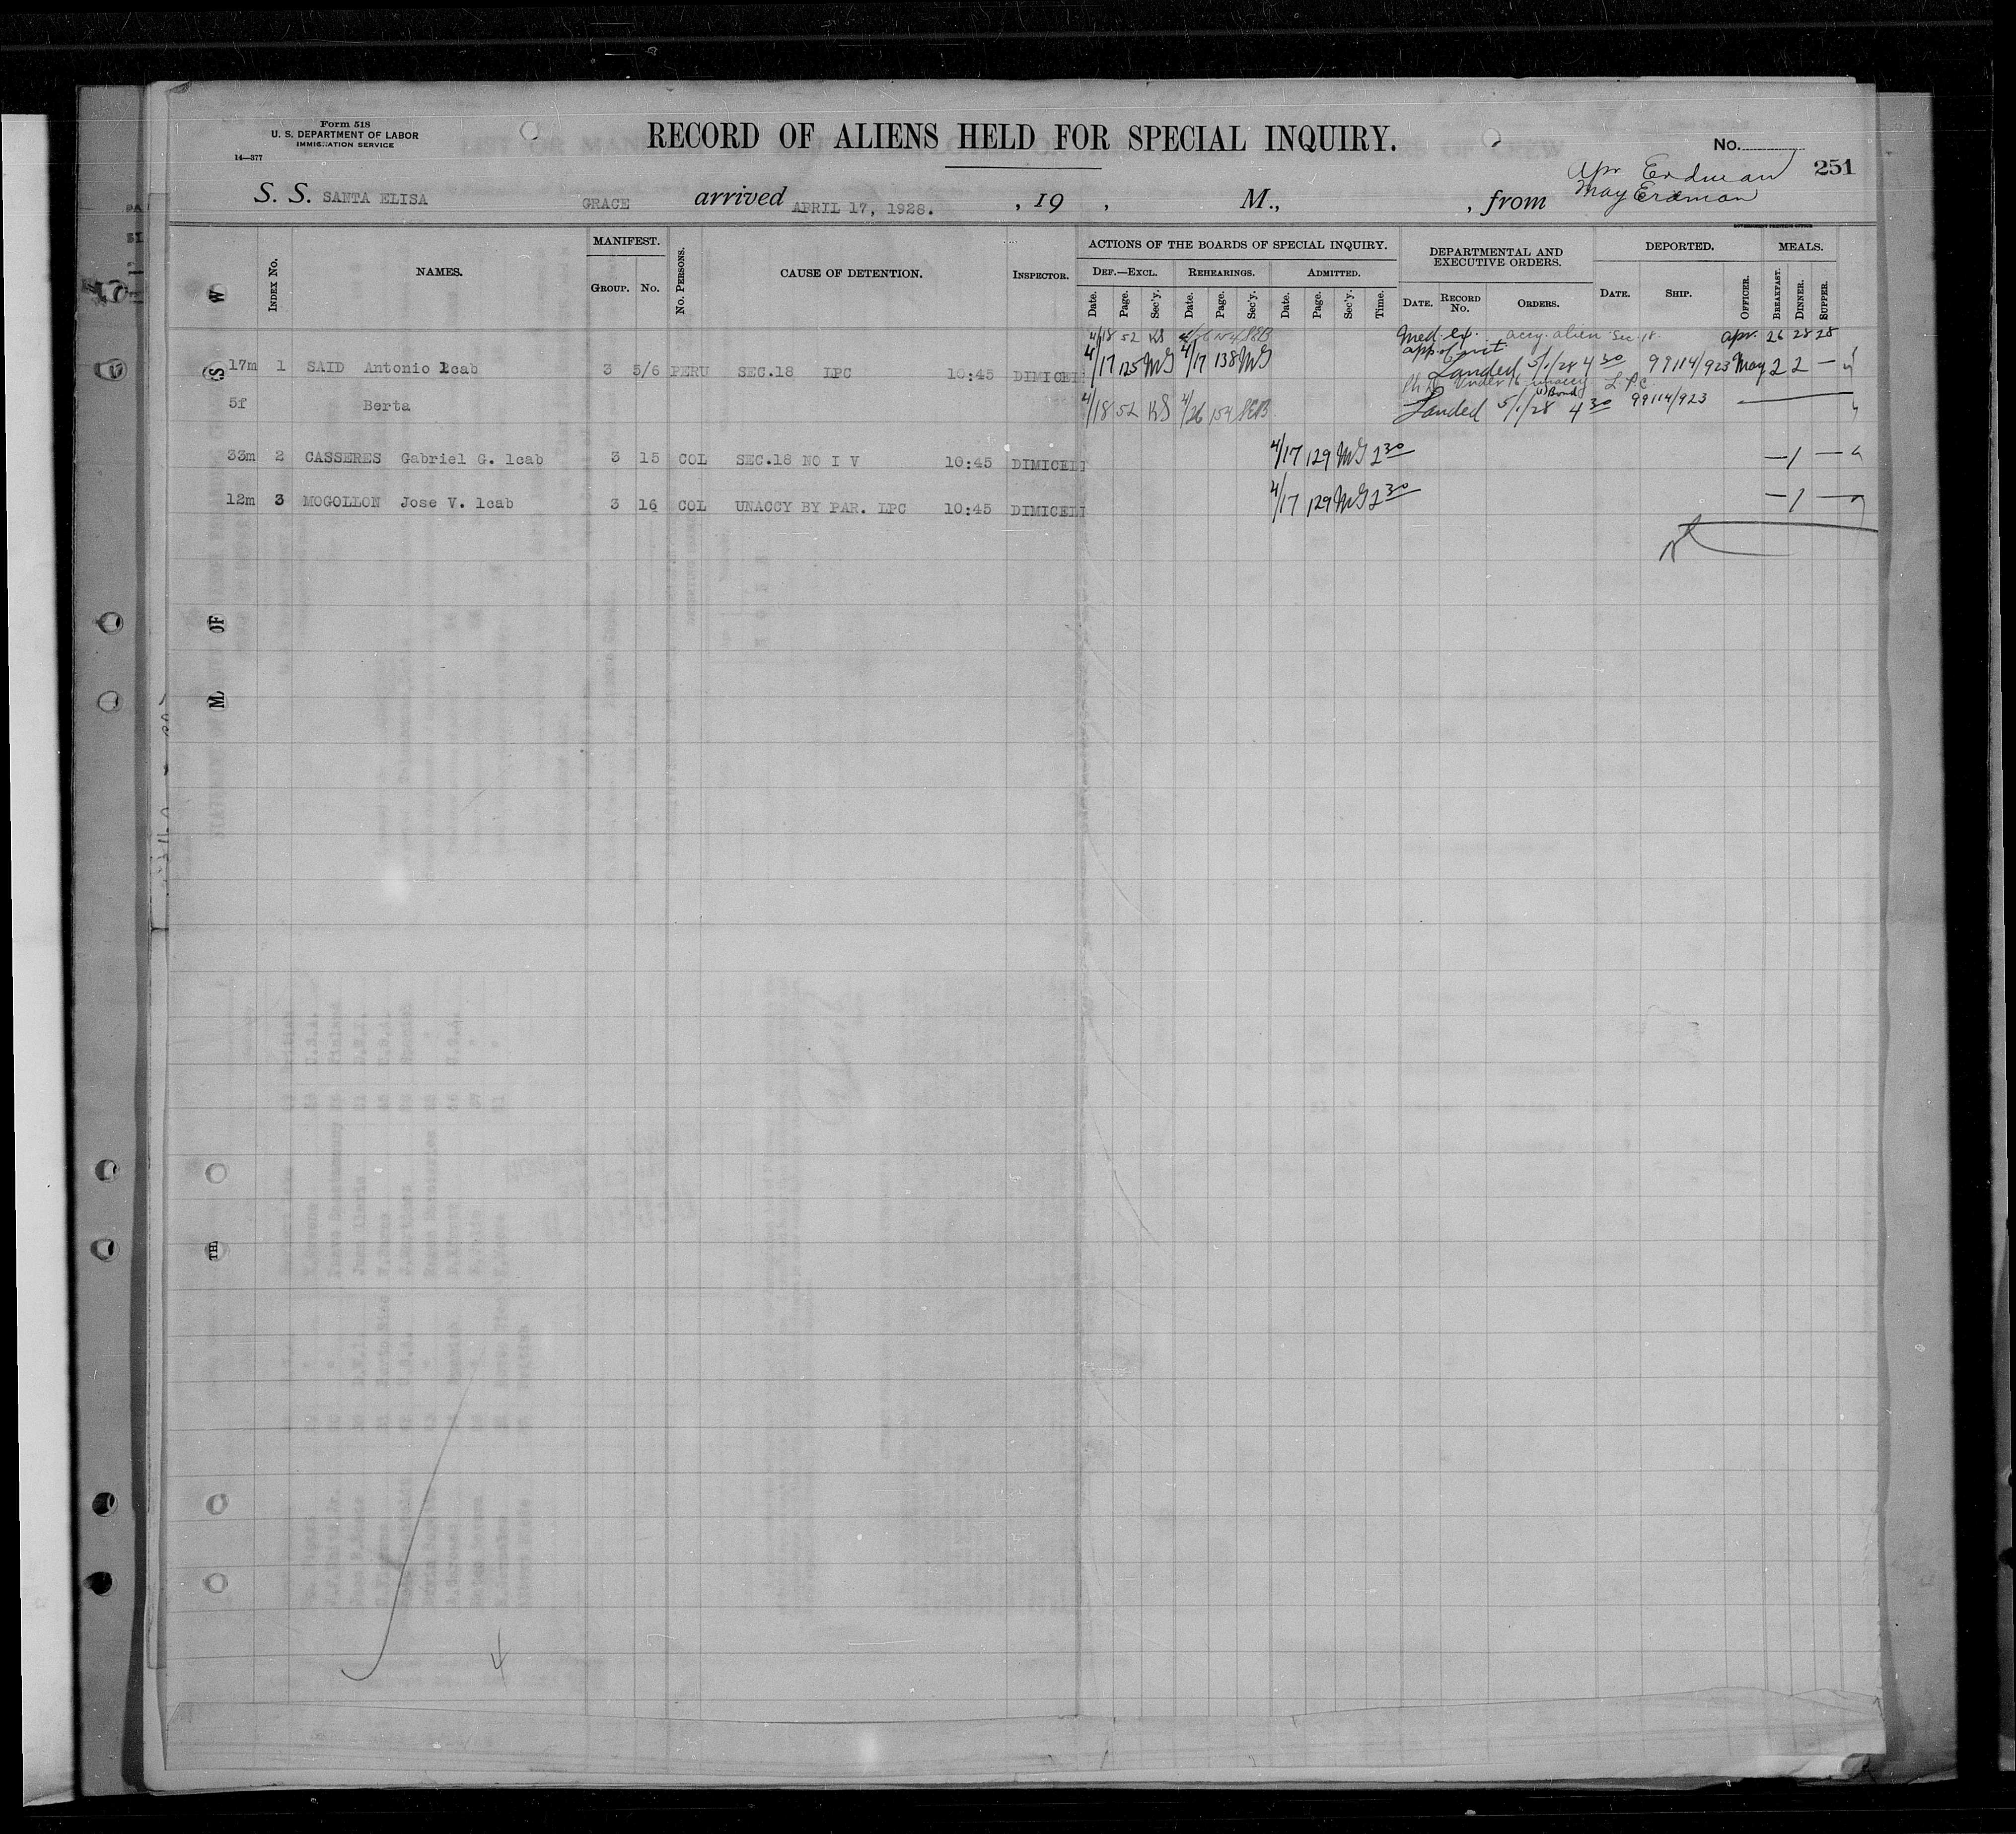 Form 518
U. S. DEPARTMENT OF LABOR
IMMIGRATION SERVICE
14—377
RECORD OF ALIENS HELD FOR SPECIAL INQUIRY.
No.
251
Apr Erdman
May Erdman
S. S. SANTA ELISA GRACE arrived APRIL 17, 1928. , 19 , M., , from
INDEX No. NAMES. MANIFEST. GROUP. No. No. PERSONS. CAUSE OF DETENTION. INSPECTOR.
ACTIONS OF THE BOARDS OF SPECIAL INQUIRY. DEF.—EXCL. REHEARINGS. ADMITTED.
Date. Page. Sec'y. Date. Page. Sec'y. Date. Page. Sec'y. Time.
DEPARTMENTAL AND EXECUTIVE ORDERS. DATE. RECORD No. ORDERS.
DEPORTED. DATE. SHIP. OFFICER.
MEALS. BREAKFAST. DINNER. SUPPER.
4/18 52 KS Med. ex. accy. alien Sec 18. Apr. 26 28 28
17m 1 SAID Antonio 1cab 3 5/6 PERU SEC.18 LPC 10:45 DIMICELI 4/17 125 MG 4/17 138 MG Landed 5/1/28 4 30 99114/923 May 2 2 —
Under 16 unaccy. L.P.C.
5f Berta 4/18 52 KS 4/26 154 SEB Landed 5/1/28 4 30 99114/923
Bond
33m 2 CASSERES Gabriel G. 1cab 3 15 COL SEC.18 NO I V 10:45 DIMICELI 4/17 129 MG 2 30 — 1 —
12m 3 MOGOLLON Jose V. 1cab 3 16 COL UNACCY BY PAR. LPC 10:45 DIMICELI 4/17 129 MG 2 30 — 1 —
S W
M. OF
TH.